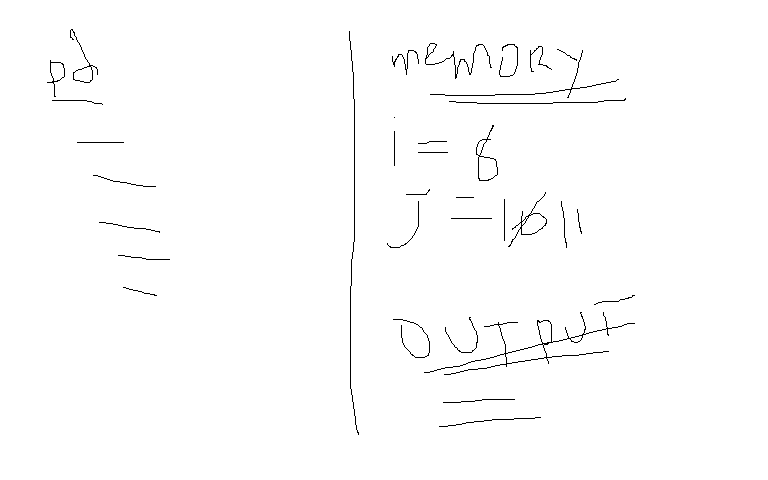 pd
MEMORY
i = 6
J = 10 11
OUTPUT